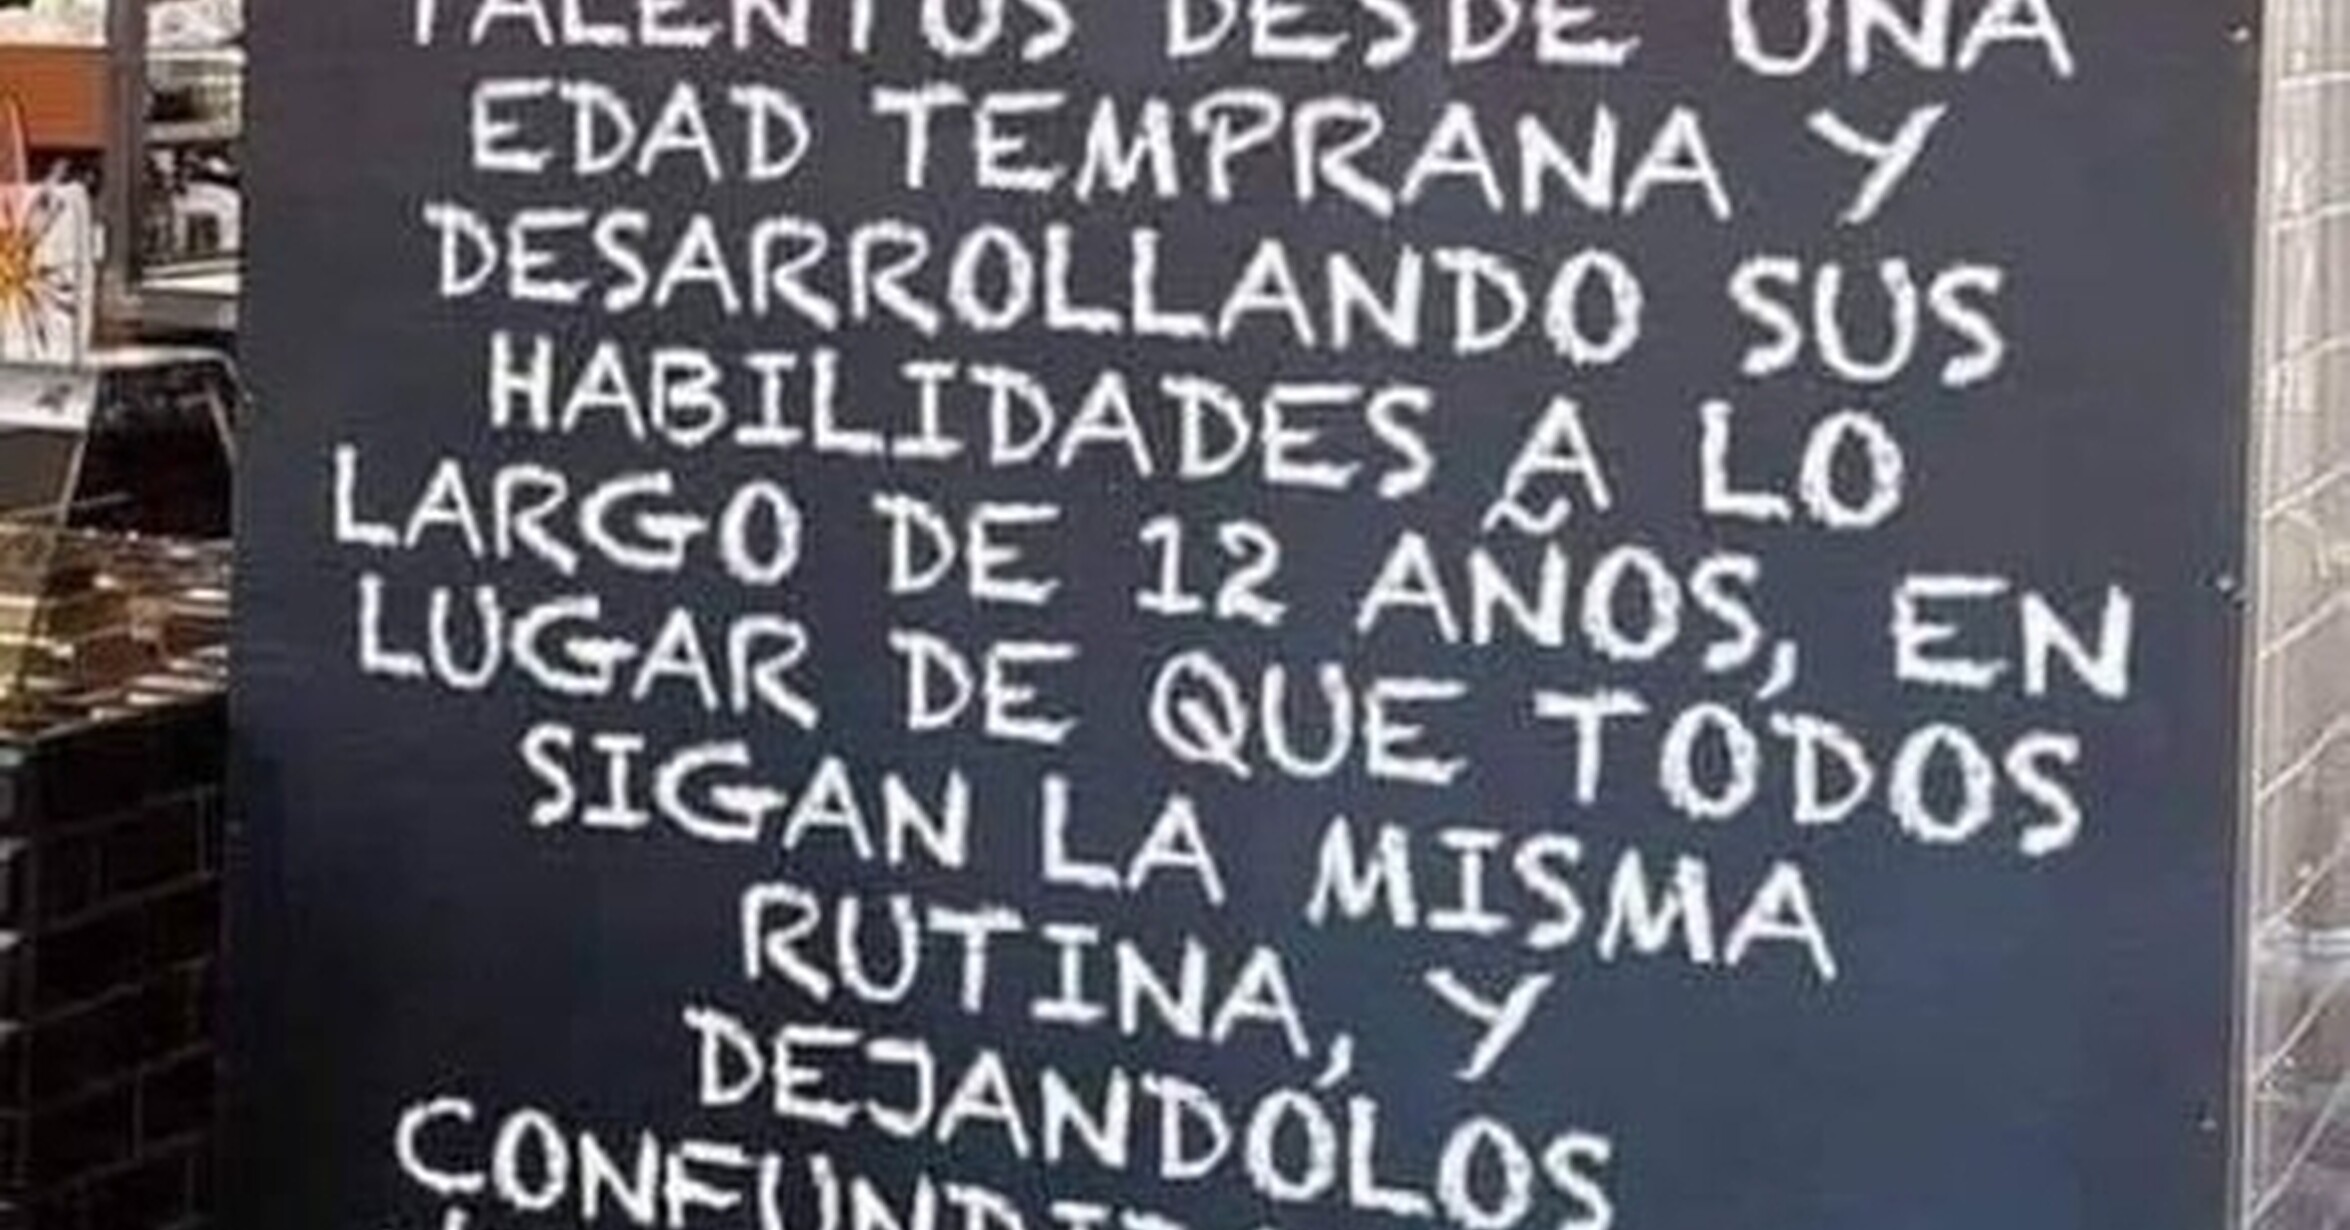 TALENTOS DESDE UNA
EDAD TEMPRANA Y
DESARROLLANDO SUS
HABILIDADES A LO
LARGO DE 12 AÑOS, EN
LUGAR DE QUE TODOS
SIGAN LA MISMA
RUTINA, Y
DEJANDOLOS